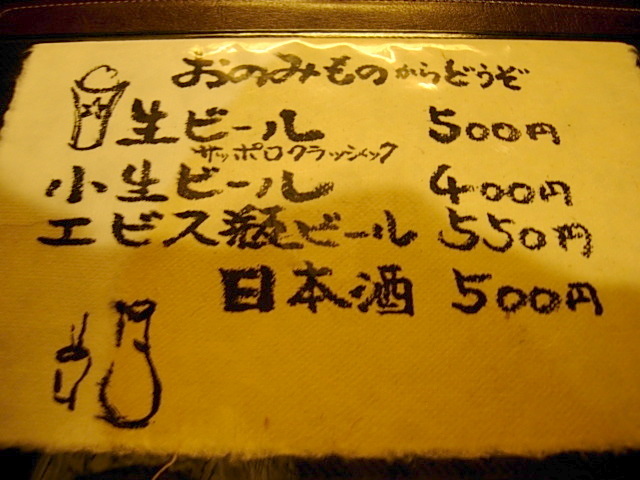 おのみものからどうぞ
生ビール 500円
サッポロクラッシック
小生ビール 400円
エビス瓶ビール 550円
日本酒 500円